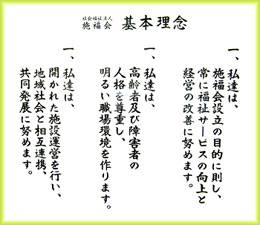 社会福祉法人
施福会 基本理念
一、私達は、
施福会設立の目的に則し、
常に福祉サービスの向上と
経営の改善に努めます。
一、私達は、
高齢者及び障害者の
人格を尊重し、
明るい職場環境を作ります。
一、私達は、
開かれた施設運営を行い、
地域社会と相互連携、
共同発展に努めます。